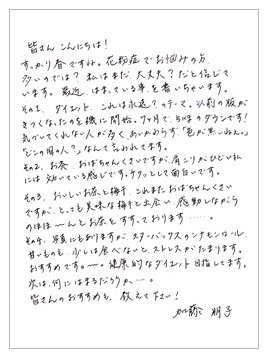 皆さん こんにちは!
すっかり春ですね。花粉症でお悩みの方
多いのでは? 私はまだ大丈夫?だと信じて
います。最近、はまっている事を書いちゃいます。
その1. ダイエット。これは永遠?のテーマ。以前の服が
きつくなったのを機に開始。7ヶ月で、5kgのダウンです!
気づいてくれない人が多く、あいかわらず「色が黒いねぇ。」
「どこの国の人?」なんて言われてます。
その2. お灸。おばちゃんくさいですが、肩こりがひどい私
には、効いている感じです。ケラッとして面白いです。
その3. おいしいお茶と梅干。これまたおばちゃんくさい
ですが、とっても美味な梅干と出会い、感動しながら
のほほ〜んとお茶をすすっております……。
その4. 写真にもありますが、スターバックスのシナモンロール。
甘いものも、少しは食べないと、ストレスがたまります。
おすすめです。〜健康的なダイエット目指してます。
次は、何にはまるだろうか…。
皆さんのおすすめも、教えて下さい!
加藤 朋子